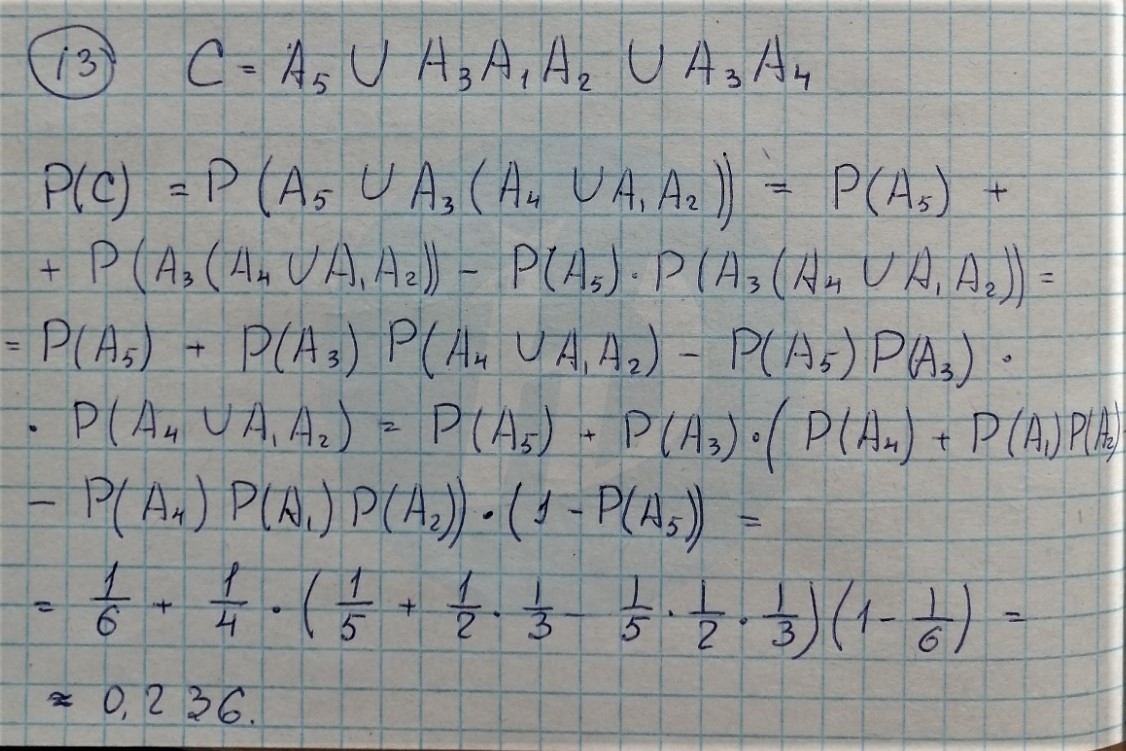 13 C = A₅ ∪ A₃A₁A₂ ∪ A₃A₄
P(C) = P(A₅ ∪ A₃(A₄ ∪ A₁A₂)) = P(A₅) +
+ P(A₃(A₄ ∪ A₁A₂)) − P(A₅)·P(A₃(A₄ ∪ A₁A₂)) =
= P(A₅) + P(A₃) P(A₄ ∪ A₁A₂) − P(A₅) P(A₃) ·
· P(A₄ ∪ A₁A₂) = P(A₅) + P(A₃)·(P(A₄) + P(A₁)P(A₂)
− P(A₄) P(A₁) P(A₂))·(1 − P(A₅)) =
= 1/6 + 1/4 · (1/5 + 1/2 · 1/3 − 1/5 · 1/2 · 1/3)(1 − 1/6) =
≈ 0,236.